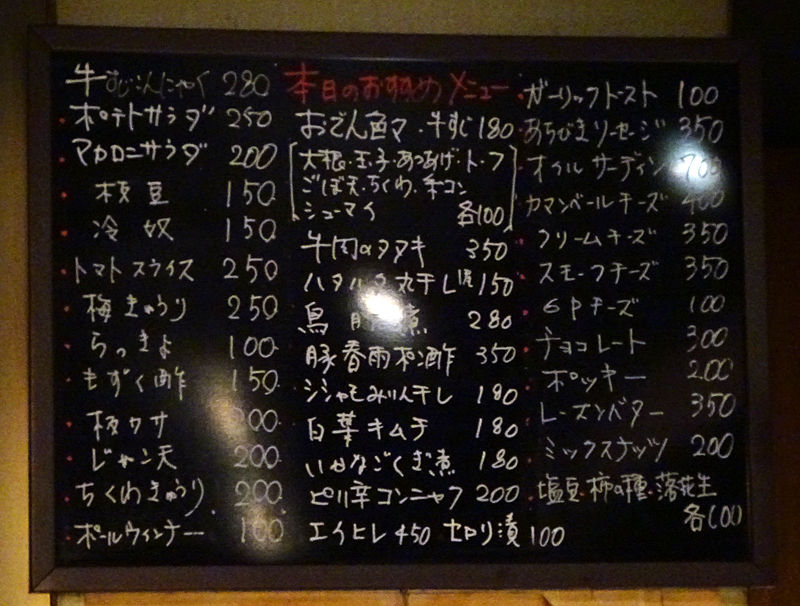 牛すじこんにゃく 280
ポテトサラダ 250
マカロニサラダ 200
枝豆 150
冷奴 150
トマトスライス 250
梅きゅうり 250
らっきょ 100
もずく酢 150
板ワサ
じゃこ天 200
ちくわきゅうり 200
ポールウィンナー 100
本日のおすすめメニュー
おでん 各マ・牛すじ 180
大根・玉子・あつあげ・トーフ
ごぼ天・ちくわ・糸コン
シューマイ 各100
牛肉のタタキ 350
ホタルイカ丸干し 150
鳥 煮 280
豚春雨和酢 350
シシャモみりん干し 180
白菜キムチ 180
いかなごくぎ煮 180
ピリ辛コンニャク 200
エイヒレ 450 セロリ漬 100
ガーリックトースト 100
あらびきソーセージ 350
オイルサーディン 700
カマンベールチーズ 400
クリームチーズ 350
スモークチーズ 350
6Pチーズ 100
チョコレート 300
ポッキー 200
レーズンバター 350
ミックスナッツ 200
塩豆・柿の種・落花生
各100